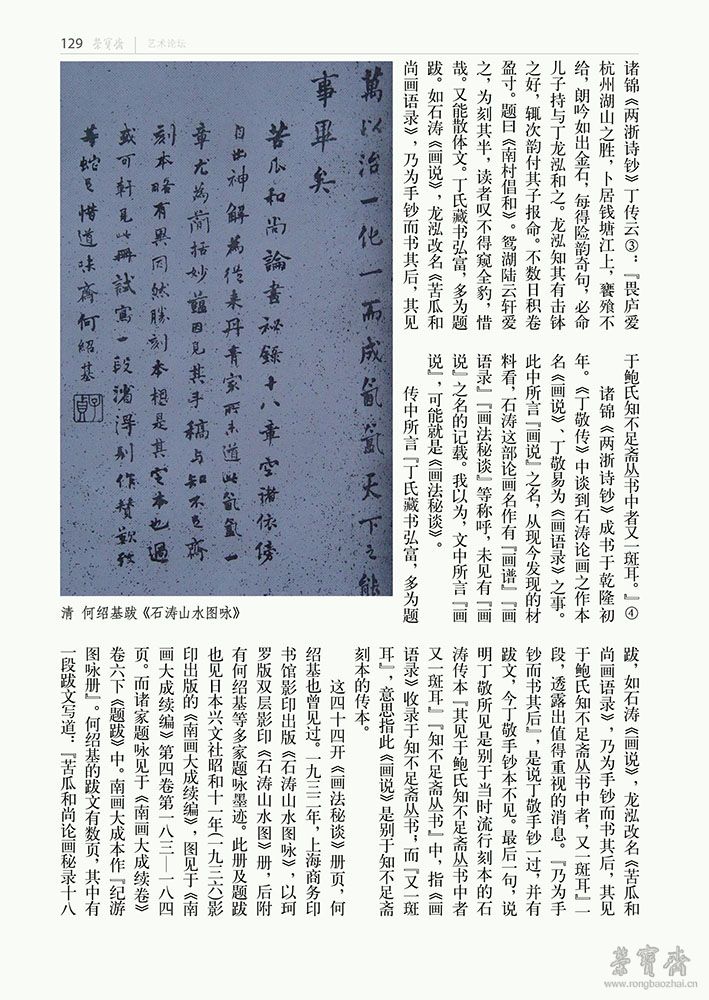 129 荣宝斋 艺术论坛
诸锦《两浙诗钞》丁传云③：『畏庐爱
杭州湖山之胜，卜居钱塘江上，饔飧不
给，朗吟如出金石，每得险韵奇句，必命
儿子持与丁龙泓和之。龙泓知其有击钵
之好，辄次韵付其子报命。不数日积卷
盈寸。题曰《南村倡和》。鸳湖陆云轩爱
之，为刻其半，读者叹不得窥全豹，惜
哉。又能散体文。丁氏藏书弘富，多为题
跋。如石涛《画说》，龙泓改名《苦瓜和
尚画语录》，乃为手钞而书其后，其见
萬以治一化一而成氤氲天下之能
事畢矣
苦瓜和尚論畫祕錄十八章空諸依傍
自出神解為從来丹青家所未道此氤氲一
章尤為簡括妙蘊因見其手稿与知不足齋
刻本略有異同然勝刻本想是其定本也過
或可軒見此冊試寫一段濤得别作贊歎於
蝯叟惜道味齋何紹基
子貞
清 何绍基跋《石涛山水图咏》
于鲍氏知不足斋丛书中者又一斑耳。』④
诸锦《两浙诗钞》成书于乾隆初
年。《丁敬传》中谈到石涛论画之作本
名《画说》、丁敬易为《画语录》之事。
此中所言『画说』之名，从现今发现的材
料看，石涛这部论画名作有『画谱』『画
语录』『画法秘谈』等称呼，未见有『画
说』之名的记载。我以为，文中所言『画
说』，可能就是《画法秘谈》。
传中所言『丁氏藏书弘富，多为题
跋，如石涛《画说》，龙泓改名《苦瓜和
尚画语录》，乃为手钞而书其后，其见
于鲍氏知不足斋丛书中者，又一斑耳』一
段，透露出值得重视的消息。『乃为手
钞而书其后』，是说丁敬手钞一过，并有
跋文，今丁敬手钞本不见。最后一句，说
明丁敬所见是别于当时流行刻本的石
涛传本『其见于鲍氏知不足斋丛书中者
又一斑耳』『知不足斋丛书』中，指《画
语录》收录于知不足斋丛书；而『又一斑
耳』，意思指此《画说》是别于知不足斋
刻本的传本。
这四十四开《画法秘谈》册页，何
绍基也曾见过。一九三二年，上海商务印
书馆影印出版《石涛山水图咏》，以珂
罗版双层影印《石涛山水图》册，后附
有何绍基等多家题咏墨迹。此册及题跋
也见日本兴文社昭和十一年（一九三六）影
印出版的《南画大成续编》，图见于《南
画大成续编》第四卷第一八三—一八四
页。而诸家题咏见于《南画大成续卷》
卷六下《题跋》中。南画大成本作『纪游
图咏册』。何绍基的跋文有数页，其中有
一段跋文写道：『苦瓜和尚论画秘录十八
荣宝斋
www.rongbaozhai.cn